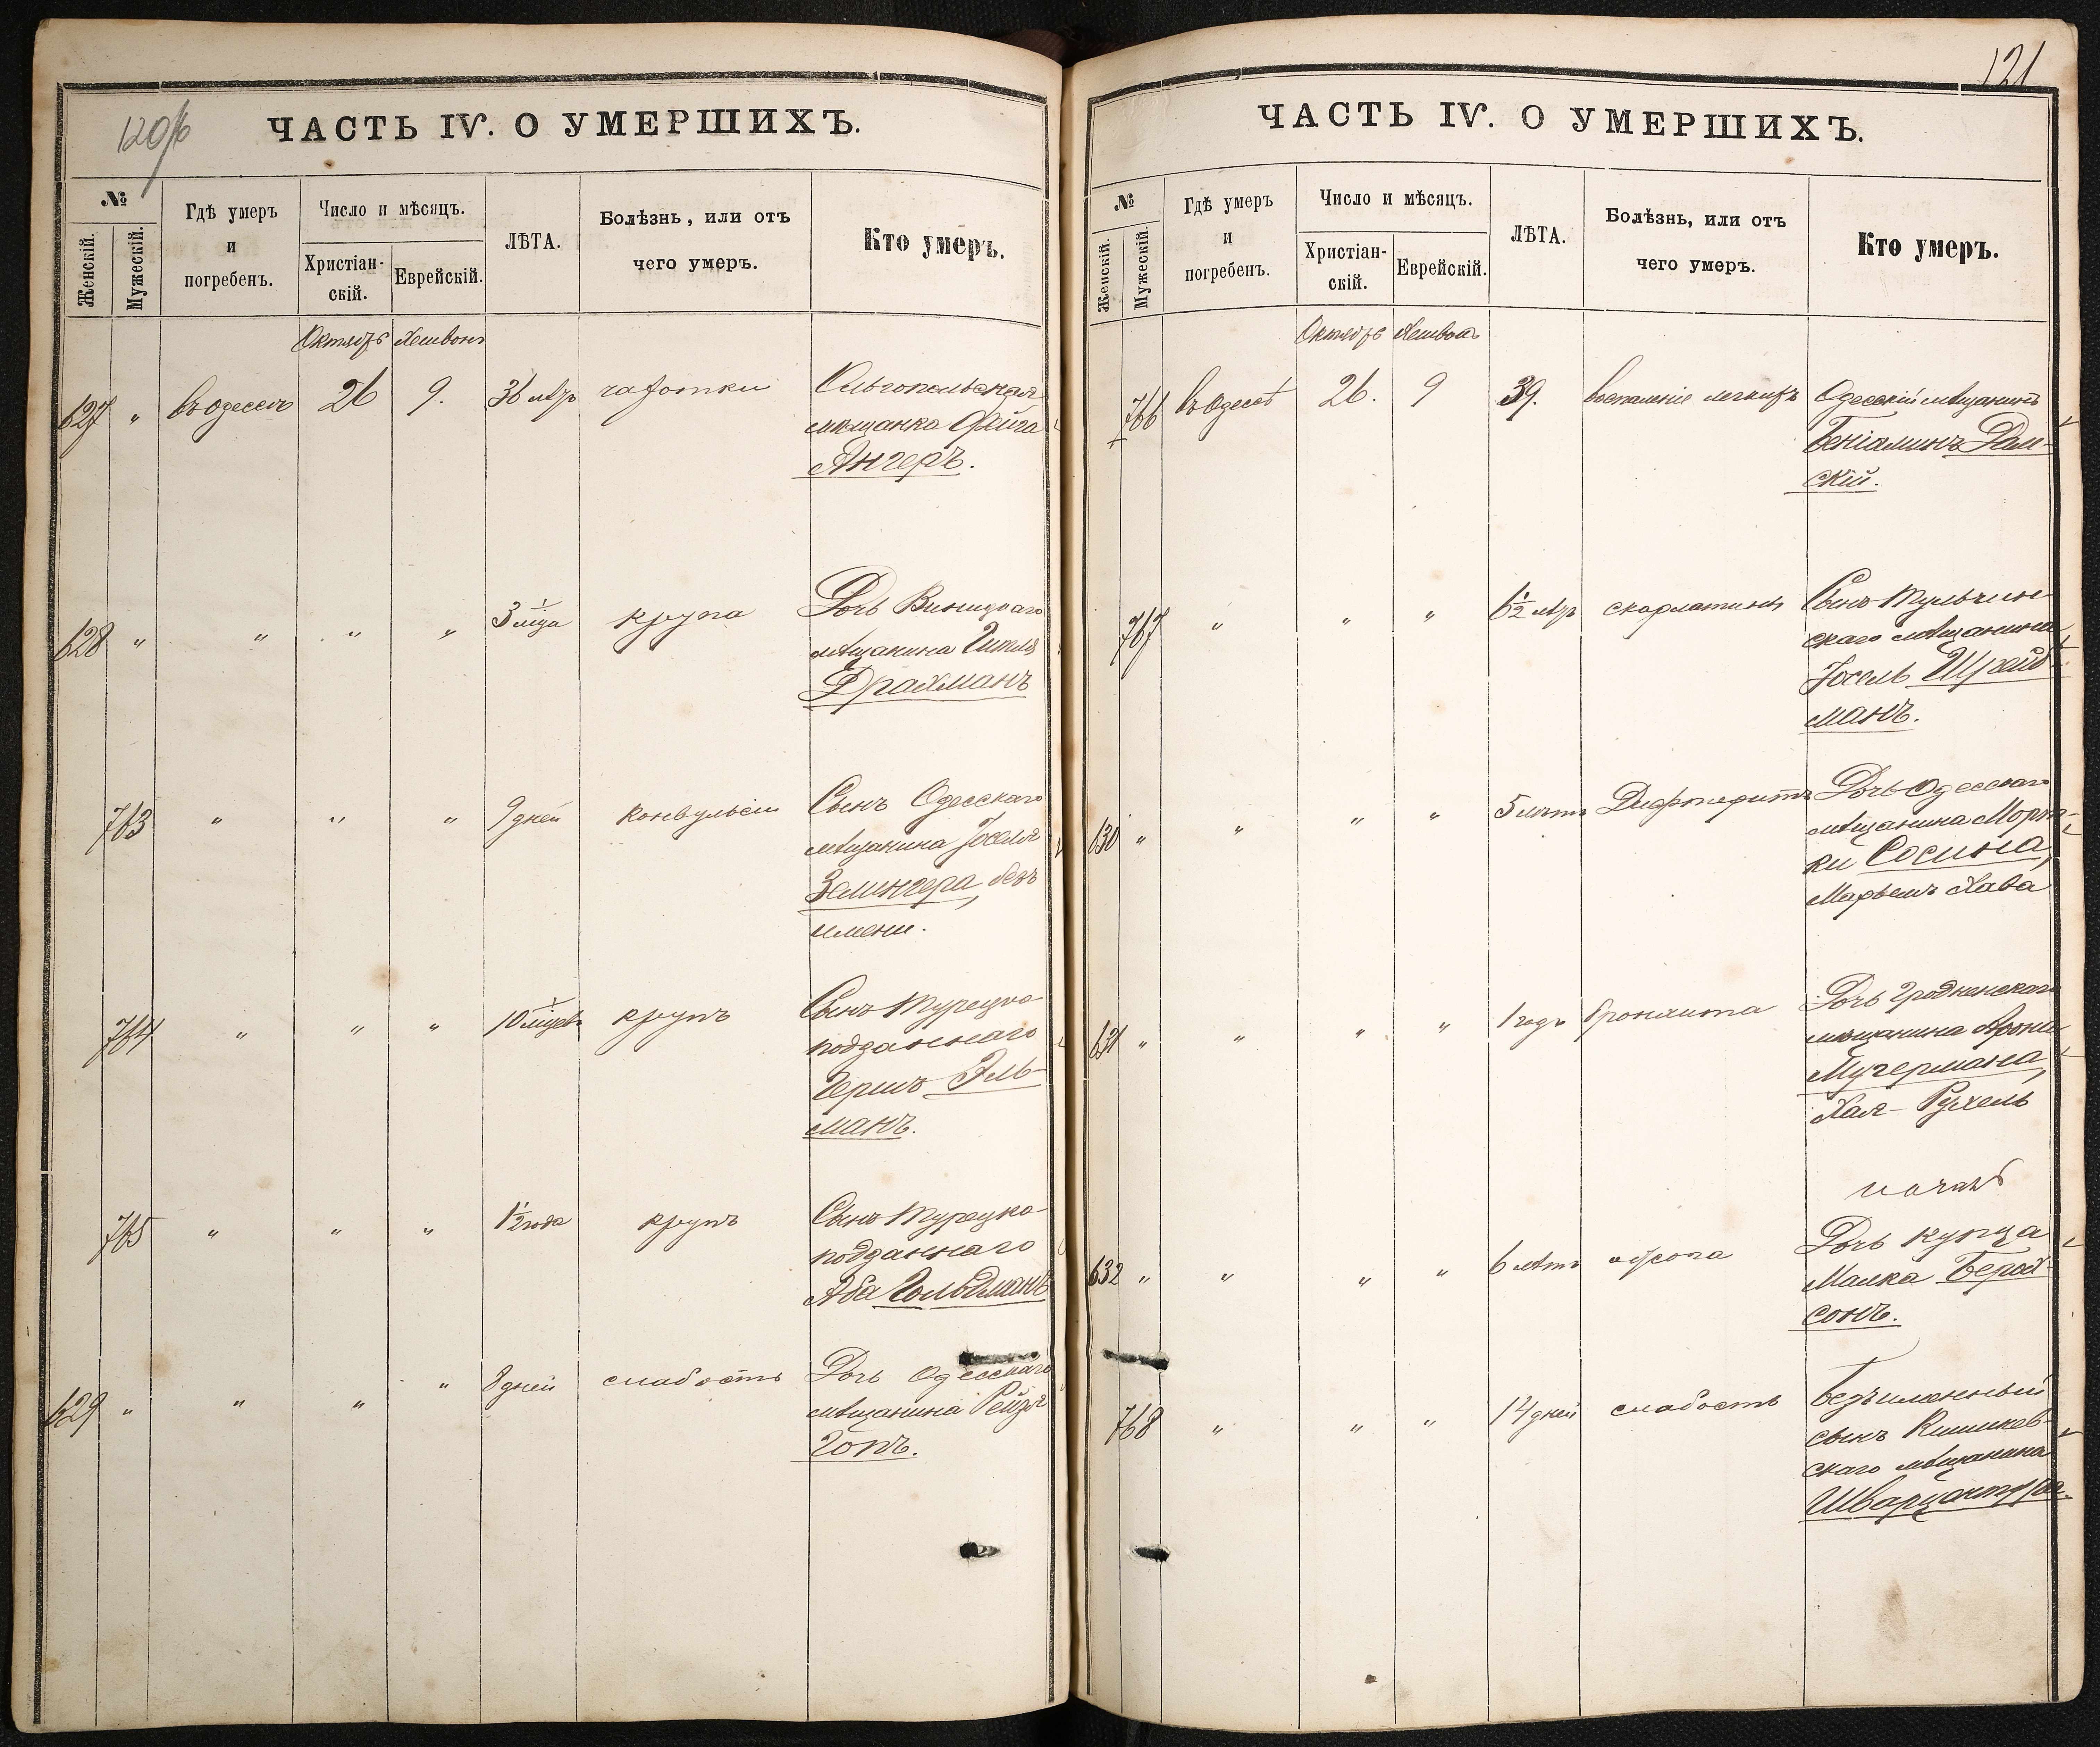 120/б
ЧАСТЬ IV. О УМЕРШИХЪ.
№
Женскій.
Мужескій.
Гдѣ умеръ
и
погребенъ.
Число и мѣсяцъ.
Христіан-
скій.
Еврейскій.
ЛѢТА.
Болѣзнь, или отъ
чего умеръ.
Кто умеръ.
Октябрь Хешвонъ
627 " въ Одессѣ 26 9. 36 лѣтъ чахотки Ольгопольская
мѣщанка Фейга
Ангеръ.
628 " " " " 3 м-ца крупа Дочь Виницкаго
мѣщанина Гитля
Драхманъ
763 " " " 9 дней конвульсіи Сынъ Одесскаго
мѣщанина Іоселя
Зелингера, безъ
имени.
764 " " " 10 м-цевъ крупъ Сынъ Турецко
подданнаго
Гершъ Эль-
манъ.
765 " " " 1½ года крупъ Сынъ Турецко
подданнаго
Аба Гольдманъ
629 " " " " 8 дней слабость Дочь Одесскаго
мѣщанина Рейзя
Гопъ.
121
ЧАСТЬ IV. О УМЕРШИХЪ.
№
Женскій.
Мужескій.
Гдѣ умеръ
и
погребенъ.
Число и мѣсяцъ.
Христіан-
скій.
Еврейскій.
ЛѢТА.
Болѣзнь, или отъ
чего умеръ.
Кто умеръ.
Октябрь Хешвонъ
766 въ Одессѣ 26. 9 39. воспаленіе легкихъ Одесскій мѣщанинъ
Беніаминъ
скій.
767 " " " 6½ лѣтъ скарлатинъ Сынъ Тульчин-
скаго мѣщанина
Іосель Шрайб
манъ.
630 " " " " 5 лѣтъ Дифтеритъ Дочь Одесскаго
мѣщанина Морт-
ки Сосина,
Марьемъ Хава
631 " " " " 1 годъ бронхита Дочь Гродненскаго
мѣщанина Арона
Мучермана,
Хая-Рухель
632 " " " " 6 лѣтъ Дочь купца
Малка Берах-
сонъ.
768 " " " 14 дней слабость Безъименный
сынъ Кишинев-
скаго мѣщанина